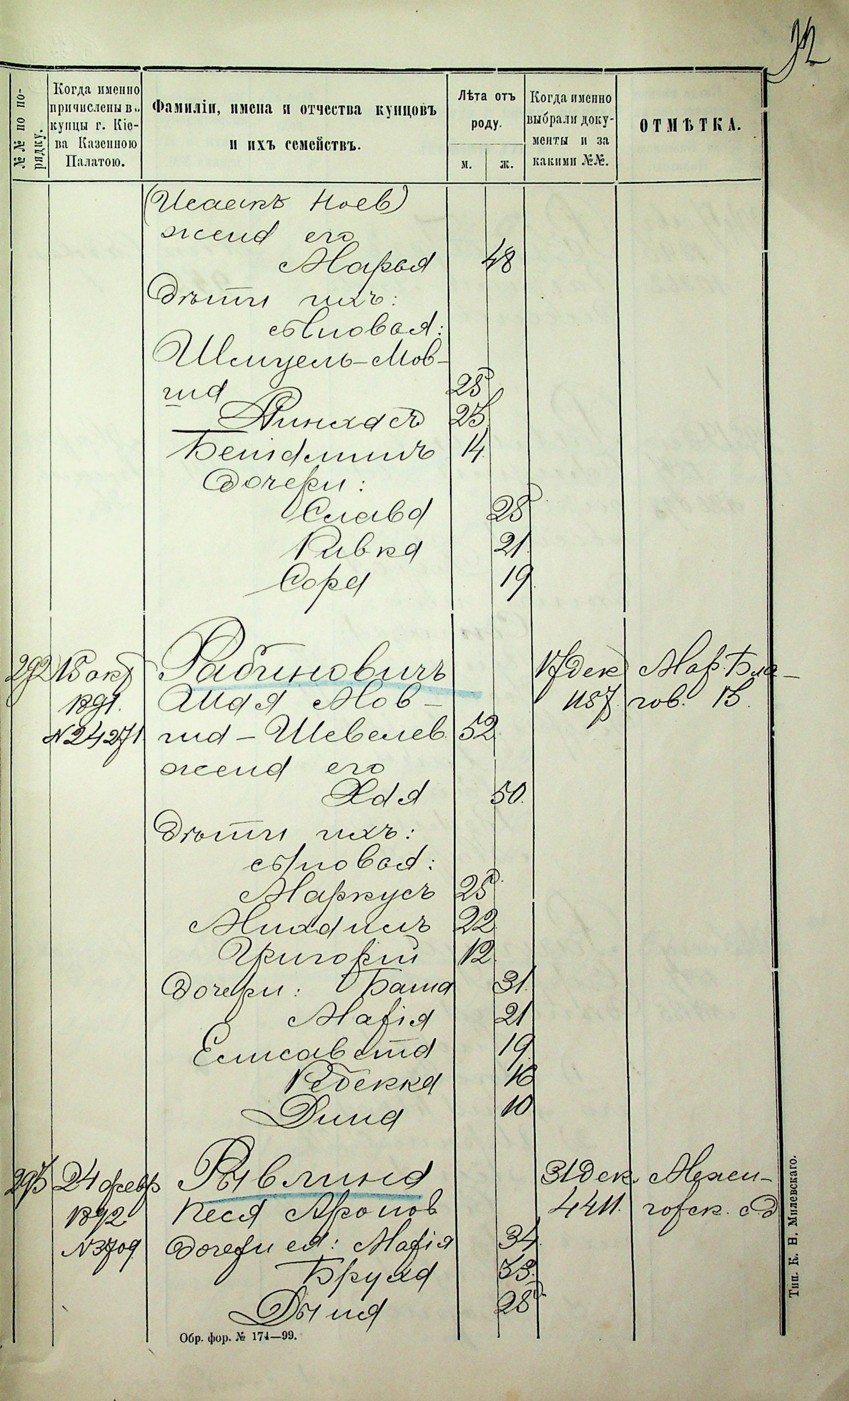 92
№№ по по-
рядку.
Когда именно
причислены въ
купцы г. Кіе-
ва Казенною
Палатою.
Фамиліи, имена и отчества купцовъ
и ихъ семействъ.
Лѣта отъ
роду.
м. ж.
Когда именно
выбрали доку-
менты и за
какими №№.
ОТМѢТКА.
(Исаакъ Ноев)
жена его
Марья 48
Дѣти ихъ:
сыновья:
Шмуель-Мов-
ша 25
Пинхасъ 23
Беніаминъ 14
Дочери:
Слава 25
Ривка 21
Сора 19
292 15 окт Рабиновичъ 17 дек Мар. Бла-
1891. Шая Мов- 1157 гов. 15.
№24271 ша-Шевелев 52
жена его
Хая 50
Дѣти ихъ:
сыновья:
Маркусъ 25
Михаилъ 22
Григорій 12
Дочери: Баша 31
Марія 21
Елисавета 19
Ребекка 16
Дина 10
293 24 февр Рывлина 31 дек. Межи-
1892 Песя Аронов 4411. горск.
№3709 Дочери ея: Марія 34
Бруха 33
Дыня 25
Обр. фор. № 174—99.
Тип. К. Н. Милевскаго.